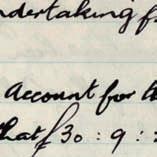 ndertaking f
Account for t
that £30 : 9 :